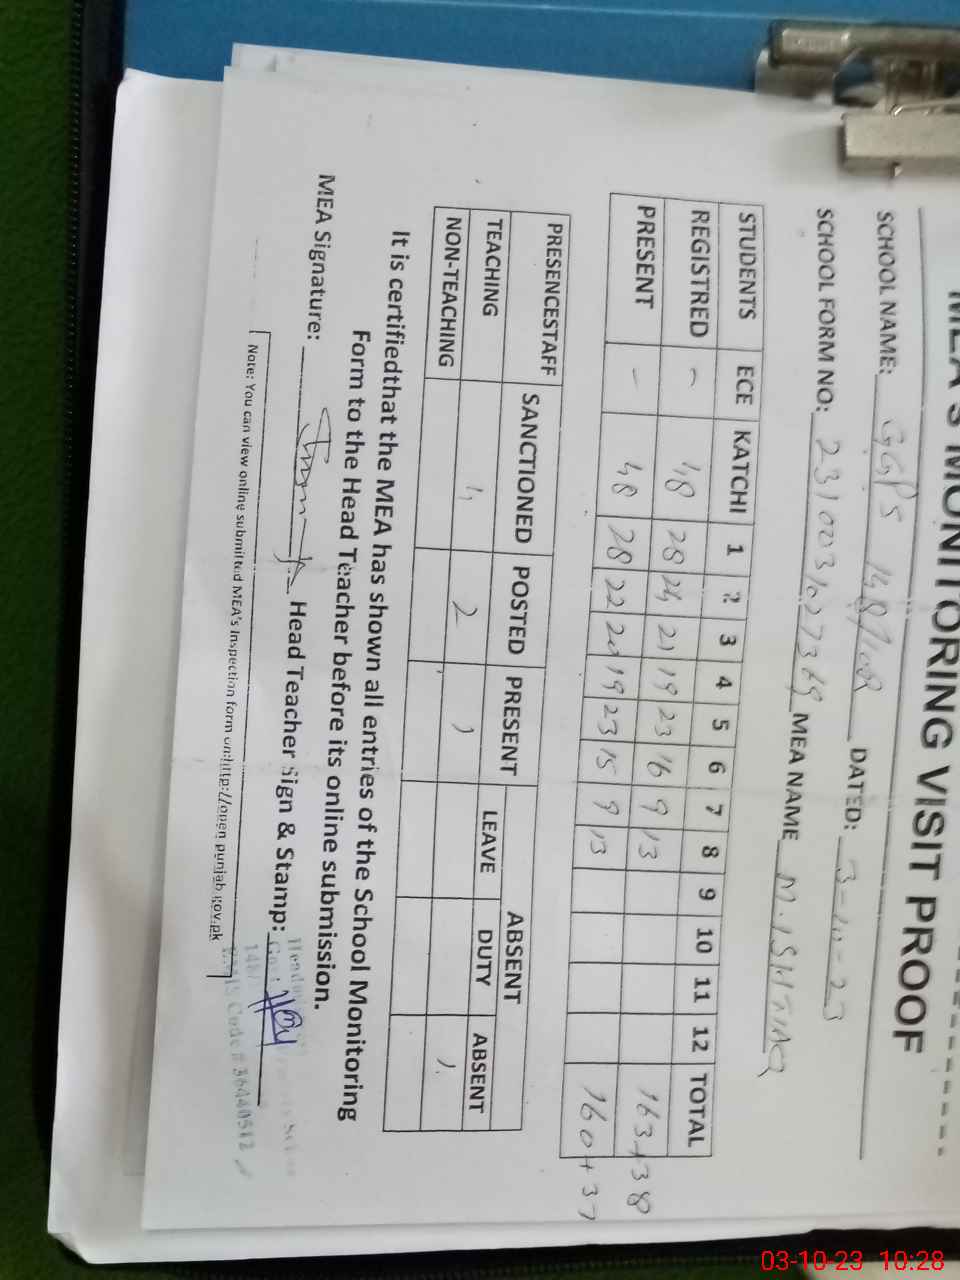 MEA'S MONITORING VISIT PROOF
SCHOOL NAME: GGPS 148/10R DATED: 3-10-23
SCHOOL FORM NO: MEA NAME M. ISHTIAQ
STUDENTS ECE KATCHI 1 2 3 4 5 6 7 8 9 10 11 12 TOTAL
REGISTRED - 48 28 24 21 19 23 16 9 13 163+38
PRESENT - 48 28 22 20 19 23 15 9 13 160+37
PRESENCESTAFF SANCTIONED POSTED PRESENT ABSENT
LEAVE DUTY ABSENT
TEACHING 4 2 1 1
NON-TEACHING
It is certifiedthat the MEA has shown all entries of the School Monitoring
Form to the Head Teacher before its online submission.
MEA Signature: Head Teacher Sign & Stamp:
Note: You can view online submitted MEA's Inspection form on:http://open.punjab.gov.pk
Code # 36440512
03-10-23 10:28